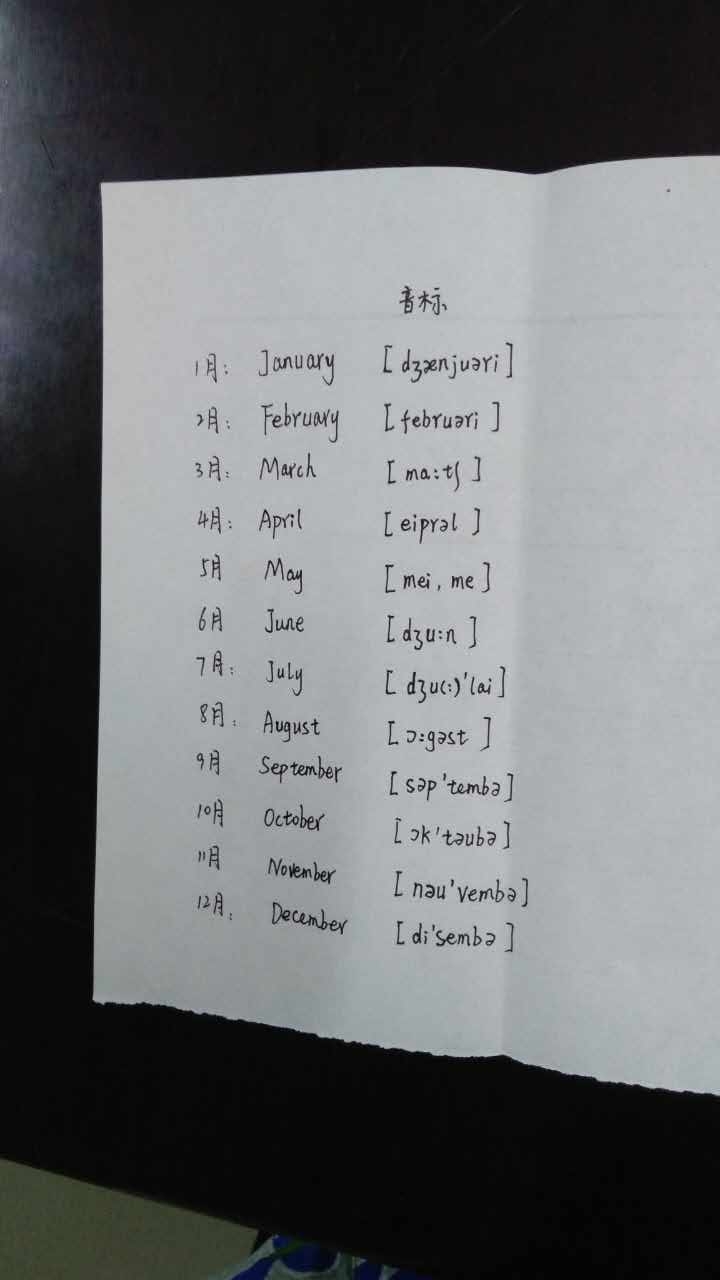 音标
1月: January [dʒænjuəri]
2月: February [februəri]
3月: March [ma:tʃ]
4月: April [eiprəl]
5月 May [mei, me]
6月 June [dʒu:n]
7月: July [dʒu(:)'lai]
8月: August [ɔ:gəst]
9月 September [səp'tembə]
10月 October [ɔk'təubə]
11月 November [nəu'vembə]
12月: December [di'sembə]